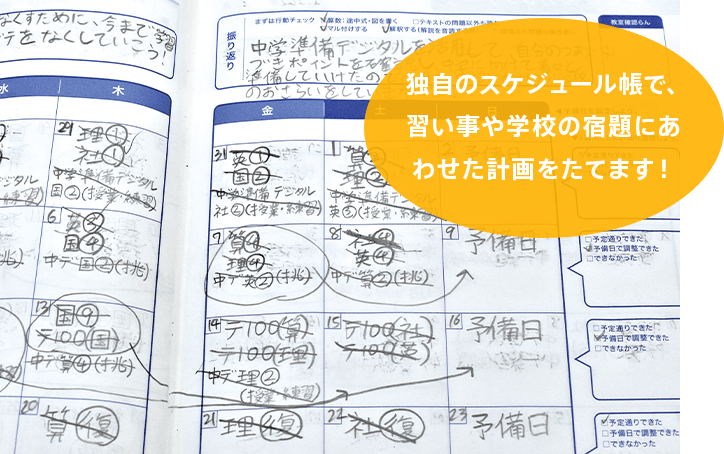 独自のスケジュール帳で、
習い事や学校の宿題にあ
わせた計画をたてます！
くすために、今まで学習
をなくしていこう！
振り返り
まずは行動チェック ✓算数：途中式・図を書く □テキストの問題以外も
✓マル付けする ✓解釈する(解説を音読する
教室確認らん
中学準備デジタルを
つきポイントを
準備していけたの
のおさらいをしてい
水 木
金 土 日
29 理①
社①
中学準備デジタル
国②(授業・練習)
31 英①
国②
中学準備デジタル
社②(授業・練習)
1 算②
理②
中学準備デジタル
英③(授業・練習)
予備日
6 英③
国④
中デ国②(挑)
7 算④
理④
中デ英②(挑)
8 社④
英④
中デ算②(挑)
9 予備日
□予定通りできた
✓予備日で調整できた
□できなかった
13 国⑨
テ100(国)
中デ算④(挑)
14 テ100(算)
テ100(理)
中デ理②
(授業・練習)
15 テ100(社)
テ100(英)
16 予備日
□予定通りできた
✓予備日で調整できた
□できなかった
20 算復
21 理復
22 社復
23 予備日
✓予定通りできた
□予備日で調整できた
□できなかった